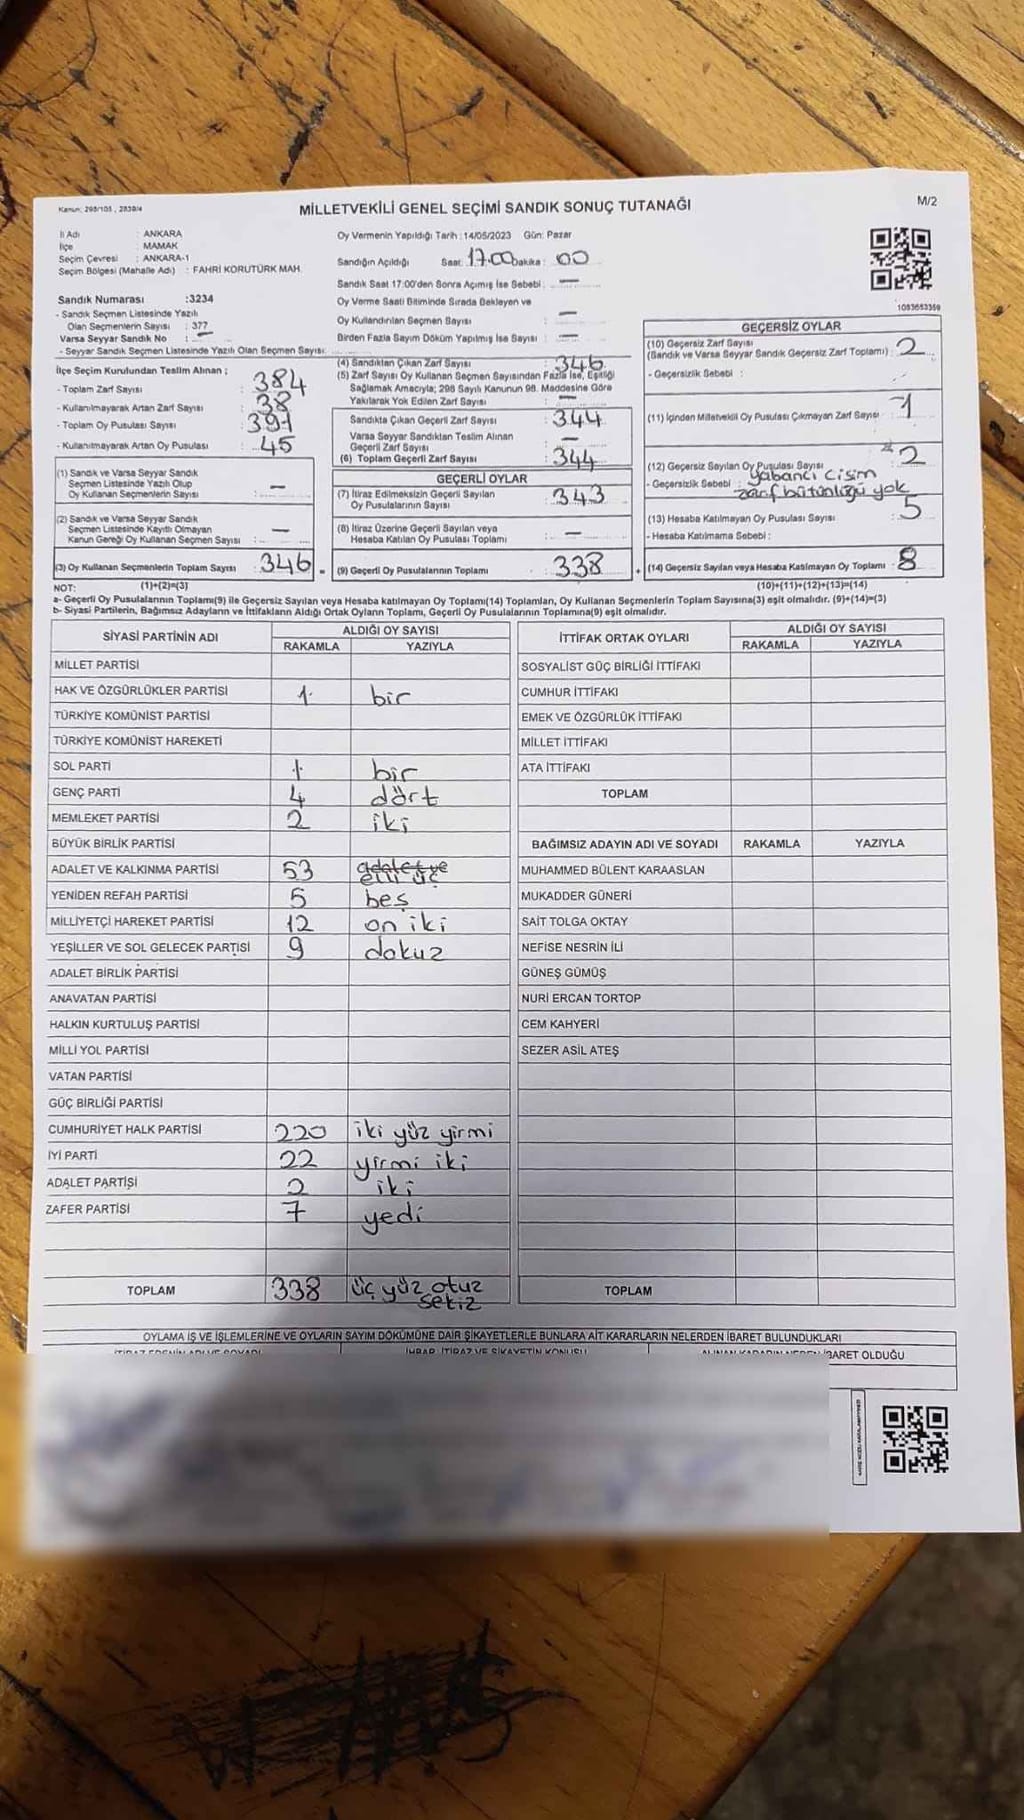 Kanun: 298/105 , 2839/4
MİLLETVEKİLİ GENEL SEÇİMİ SANDIK SONUÇ TUTANAĞI
M/2
İl Adı : ANKARA
İlçe : MAMAK
Seçim Çevresi : ANKARA-1
Seçim Bölgesi (Mahalle Adı) : FAHRİ KORUTÜRK MAH.
Sandık Numarası :3234
- Sandık Seçmen Listesinde Yazılı
Olan Seçmenlerin Sayısı : 377
Varsa Seyyar Sandık No : —
- Seyyar Sandık Seçmen Listesinde Yazılı Olan Seçmen Sayısı:
İlçe Seçim Kurulundan Teslim Alınan ;
- Toplam Zarf Sayısı : 384
- Kullanılmayarak Artan Zarf Sayısı : 38
- Toplam Oy Pusulası Sayısı : 391
- Kullanılmayarak Artan Oy Pusulası : 45
(1) Sandık ve Varsa Seyyar Sandık
Seçmen Listesinde Yazılı Olup
Oy Kullanan Seçmenlerin Sayısı : —
(2) Sandık ve Varsa Seyyar Sandık
Seçmen Listesinde Kayıtlı Olmayan
Kanun Gereği Oy Kullanan Seçmen Sayısı : —
(3) Oy Kullanan Seçmenlerin Toplam Sayısı : 346 =
NOT: (1)+(2)=(3)
Oy Vermenin Yapıldığı Tarih :14/05/2023 Gün: Pazar
Sandığın Açıldığı Saat: 17.00 Dakika : 00
Sandık Saat 17:00'den Sonra Açımış İse Sebebi : —
Oy Verme Saati Bitiminde Sırada Bekleyen ve
Oy Kullandırılan Seçmen Sayısı : —
Birden Fazla Sayım Döküm Yapılmış İse Sayısı : —
(4) Sandıktan Çıkan Zarf Sayısı : 346
(5) Zarf Sayısı Oy Kullanan Seçmen Sayısından Fazla İse, Eşitliği
Sağlamak Amacıyla; 298 Sayılı Kanunun 98. Maddesine Göre
Yakılarak Yok Edilen Zarf Sayısı : —
Sandıkta Çıkan Geçerli Zarf Sayısı : 344
Varsa Seyyar Sandıktan Teslim Alınan
Geçerli Zarf Sayısı : —
(6) Toplam Geçerli Zarf Sayısı : 344
GEÇERLİ OYLAR
(7) İtiraz Edilmeksizin Geçerli Sayılan
Oy Pusulalarının Sayısı : 343
(8) İtiraz Üzerine Geçerli Sayılan veya
Hesaba Katılan Oy Pusulası Toplamı : —
(9) Geçerli Oy Pusulalarının Toplamı : 338 +
1083683359
GEÇERSİZ OYLAR
(10) Geçersiz Zarf Sayısı
(Sandık ve Varsa Seyyar Sandık Geçersiz Zarf Toplamı) : 2
- Geçersizlik Sebebi :
(11) İçinden Milletvekili Oy Pusulası Çıkmayan Zarf Sayısı : 1
(12) Geçersiz Sayılan Oy Pusulası Sayısı 2
- Geçersizlik Sebebi : Yabancı Cisim
zarf bütünlüğü yok
(13) Hesaba Katılmayan Oy Pusulası Sayısı : 5
- Hesaba Katılmama Sebebi :
(14) Geçersiz Sayılan veya Hesaba Katılmayan Oy Toplamı : 8
(10)+(11)+(12)+(13)=(14)
a- Geçerli Oy Pusulasının Toplamı(9) ile Geçersiz Sayılan veya Hesaba katılmayan Oy Toplamı(14) Toplamları, Oy Kullanan Seçmenlerin Toplam Sayısına(3) eşit olmalıdır. (9)+(14)=(3)
b- Siyasi Partilerin, Bağımsız Adayların ve İttifakların Aldığı Ortak Oyların Toplamı, Geçerli Oy Pusulalarının Toplamına(9) eşit olmalıdır.
SİYASİ PARTİNİN ADI ALDIĞI OY SAYISI
RAKAMLA YAZIYLA
MİLLET PARTİSİ
HAK VE ÖZGÜRLÜKLER PARTİSİ 1 bir
TÜRKİYE KOMÜNİST PARTİSİ
TÜRKİYE KOMÜNİST HAREKETİ
SOL PARTİ 1 bir
GENÇ PARTİ 4 dört
MEMLEKET PARTİSİ 2 iki
BÜYÜK BİRLİK PARTİSİ
ADALET VE KALKINMA PARTİSİ 53 adalet ve
elli üç
YENİDEN REFAH PARTİSİ 5 beş
MİLLİYETÇİ HAREKET PARTİSİ 12 on iki
YEŞİLLER VE SOL GELECEK PARTİSİ 9 dokuz
ADALET BİRLİK PARTİSİ
ANAVATAN PARTİSİ
HALKIN KURTULUŞ PARTİSİ
MİLLİ YOL PARTİSİ
VATAN PARTİSİ
GÜÇ BİRLİĞİ PARTİSİ
CUMHURİYET HALK PARTİSİ 220 iki yüz yirmi
İYİ PARTİ 22 yirmi iki
ADALET PARTİSİ 2 iki
ZAFER PARTİSİ 7 yedi
TOPLAM 338 üç yüz otuz
sekiz
İTTİFAK ORTAK OYLARI ALDIĞI OY SAYISI
RAKAMLA YAZIYLA
SOSYALİST GÜÇ BİRLİĞİ İTTİFAKI
CUMHUR İTTİFAKI
EMEK VE ÖZGÜRLÜK İTTİFAKI
MİLLET İTTİFAKI
ATA İTTİFAKI
TOPLAM
BAĞIMSIZ ADAYIN ADI VE SOYADI RAKAMLA YAZIYLA
MUHAMMED BÜLENT KARAASLAN
MUKADDER GÜNERİ
SAİT TOLGA OKTAY
NEFİSE NESRİN İLİ
GÜNEŞ GÜMÜŞ
NURİ ERCAN TORTOP
CEM KAHYERİ
SEZER ASİL ATEŞ
TOPLAM
OYLAMA İŞ VE İŞLEMLERİNE VE OYLARIN SAYIM DÖKÜMÜNE DAİR ŞİKAYETLERLE BUNLARA AİT KARARLARIN NELERDEN İBARET BULUNDUKLARI
İTİRAZ EDENİN ADI VE SOYADI İHBAR, İTİRAZ VE ŞİKAYETİN KONUSU ALINAN KARARIN NEDEN İBARET OLDUĞU